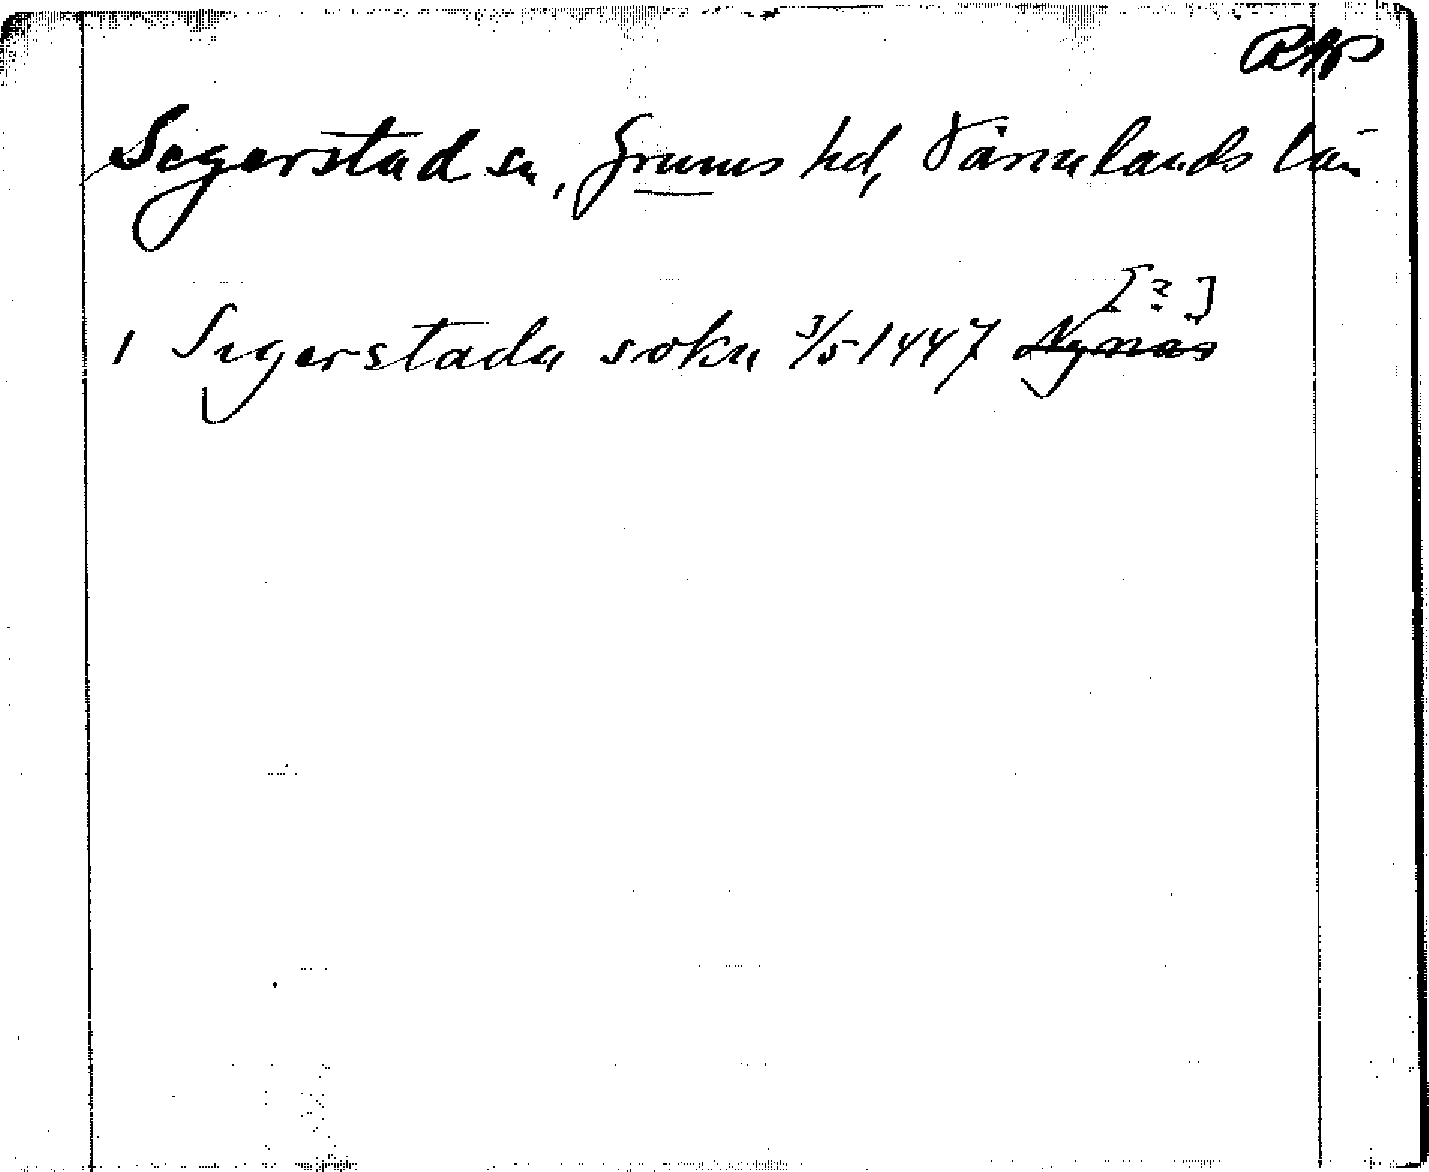 RAP
Segerstad sn, Grums hd, Värmlands län
[?]
1 Segerstada sokn 3/5 1447 Nynäs